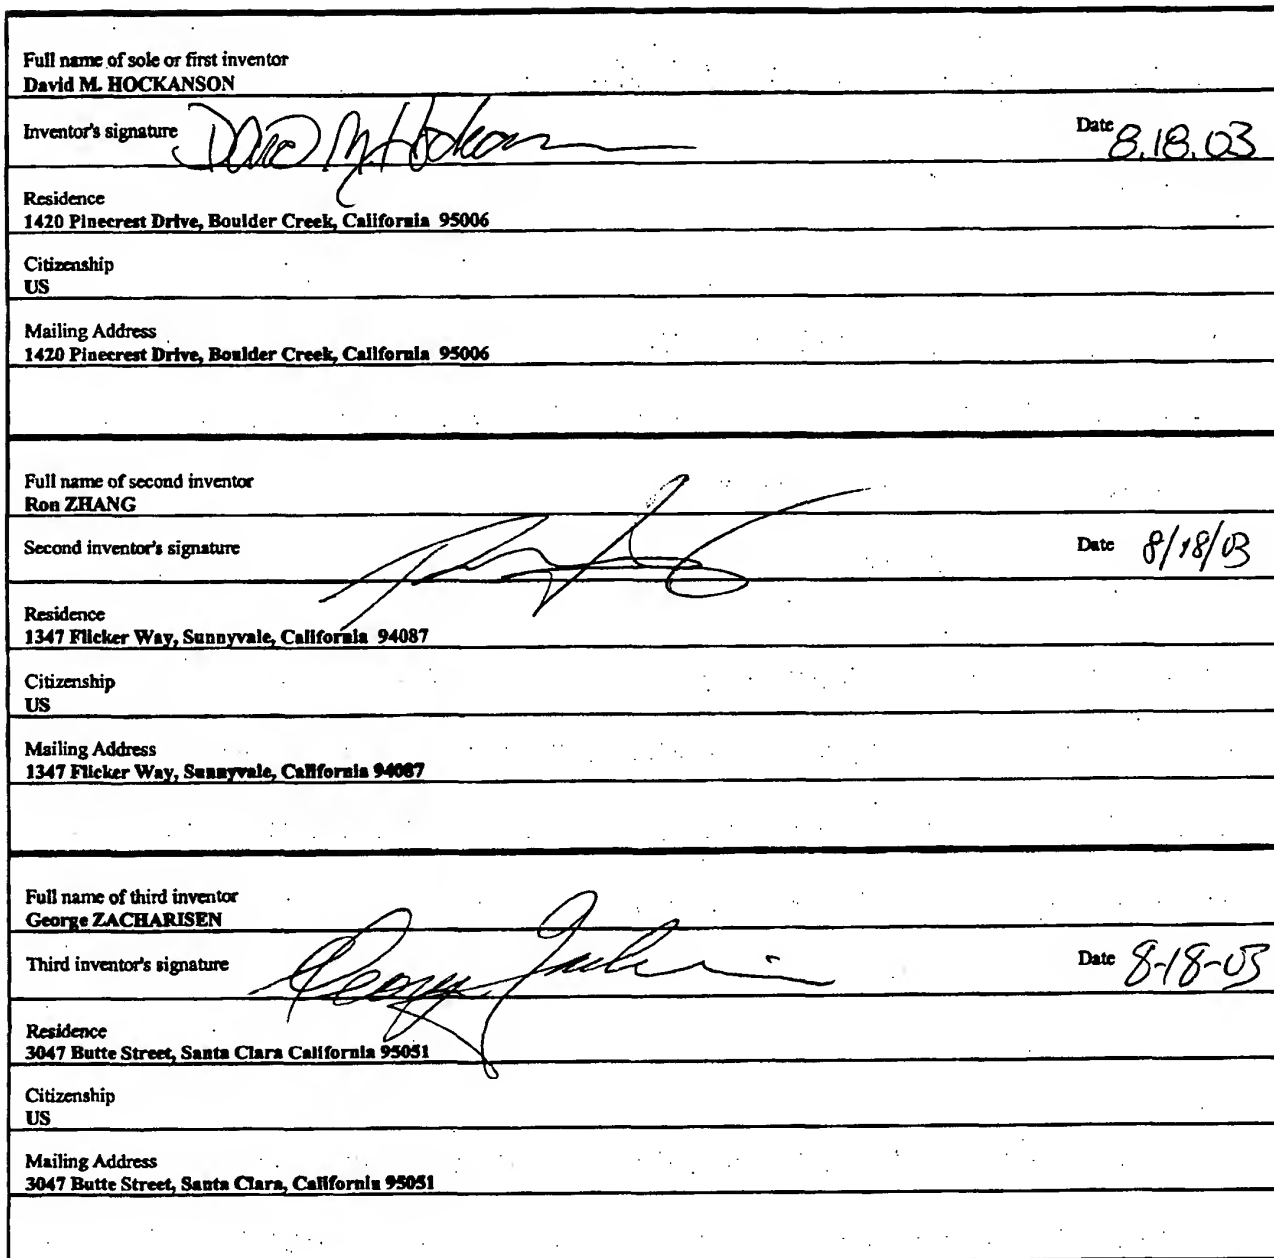 Full name of sole or first inventor
David M. HOCKANSON
Inventor's signature David M Hockanson Date 8.18.03
Residence
1420 Pinecrest Drive, Boulder Creek, California 95006
Citizenship
US
Mailing Address
1420 Pinecrest Drive, Boulder Creek, California 95006
Full name of second inventor
Ron ZHANG
Second inventor's signature Date 8/18/03
Residence
1347 Flicker Way, Sunnyvale, California 94087
Citizenship
US
Mailing Address
1347 Flicker Way, Sunnyvale, California 94087
Full name of third inventor
George ZACHARISEN
Third inventor's signature George Date 8-18-03
Residence
3047 Butte Street, Santa Clara California 95051
Citizenship
US
Mailing Address
3047 Butte Street, Santa Clara, California 95051